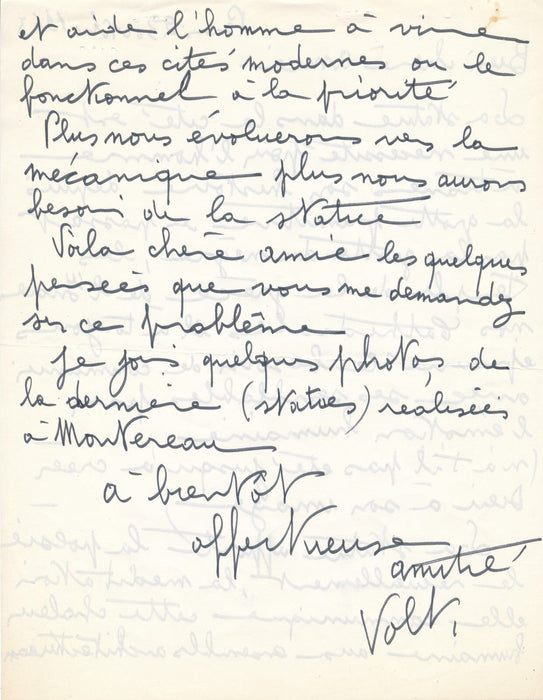 et aide l'homme à vivre
dans ces cités modernes ou le
fonctionnel à la priorité
Plus nous évoluerons vers la
mécanique plus nous aurons
besoin de la statue
Voila chère amie les quelques
pensées que vous me demandez
sur ce problème
je joins quelques photos de
la dernière (statues) réalisées
à Montereau
à bientôt
affectueuse
amitié
Volt.